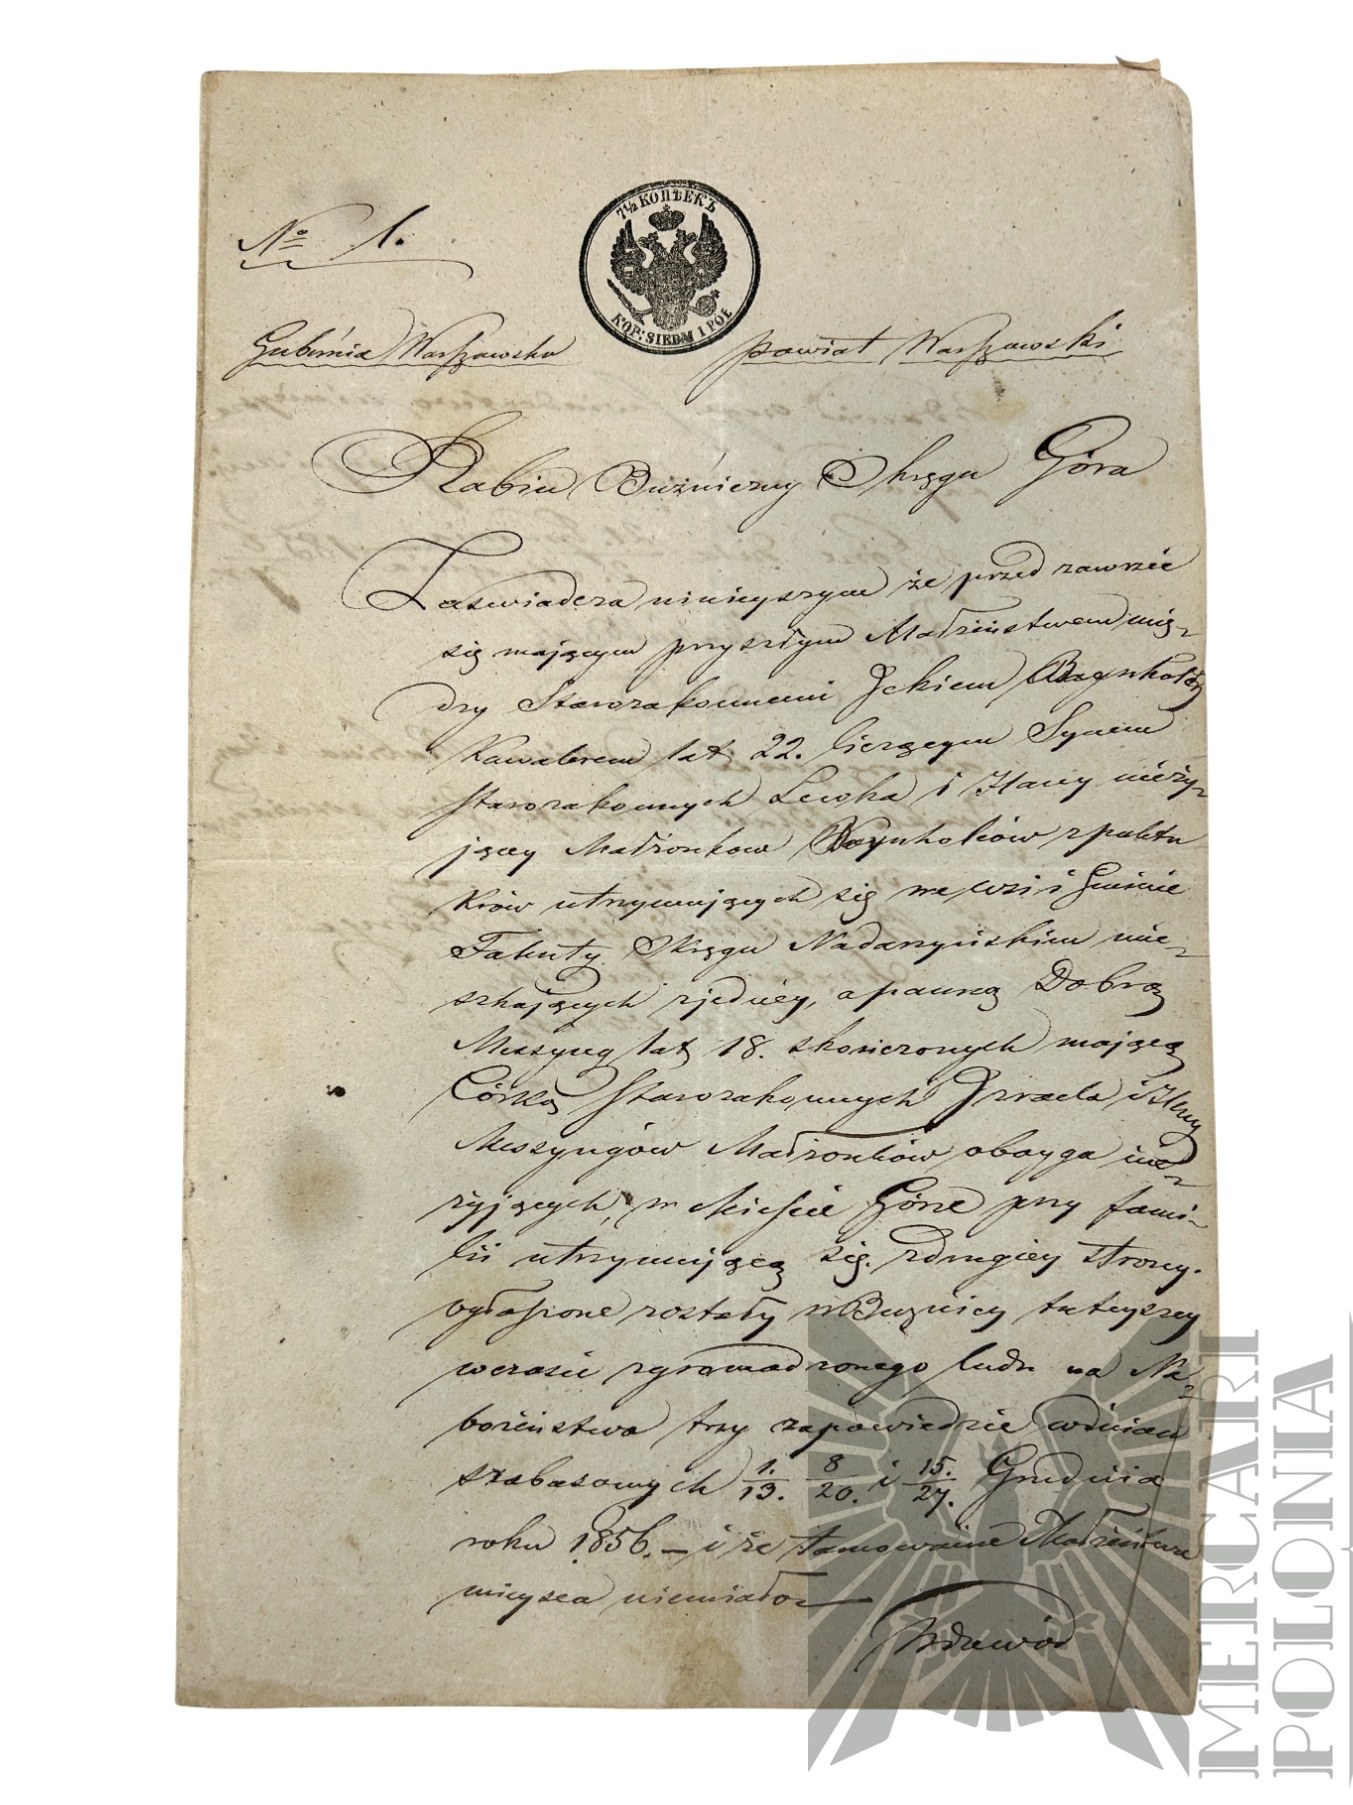 7½ КОПѢЕКЪ
KOP: SIEDM I PÓŁ
No 1.
Gubernia Warszawska
powiat Warszawski
Rabin Bużniczny Okręgu Góra
Zaswiadcza ninieyszym że przed zawrzec
się mającym przyszłym Małżeństwem mię-
dzy Starozakonnemi Ickiem
Kawalerem lat 22. liczącym Synem
starozakonnych Lewka i Hany nieży-
jący Małżonkow z paktu
Krów utrzymujących się we wsi i Gminie
Falenty Okręgu Nadarzyńskim mie-
szkających z jedney, a panną Dobrą
Messyng lat 18. skonczonych mającą
Córką Starozakonnych Izraela i
Messyngów Małżonków oboyga nie-
żyjących, w Mieście Górze przy fami-
lii utrzymującą się. z drugiey strony.
ogłoszone zostały w Bużnicy tuteyszey
wczasie zgromadzonego ludu na Na-
bożeństwo trzy zapowiedzie w dniach
szabasowych 1./13. 8/20. i 15./27. Grudnia
roku 1856. — i że tamowanie Małżeństwa
mieysca niemiało —
W dowód
MERCARI
POLONIA